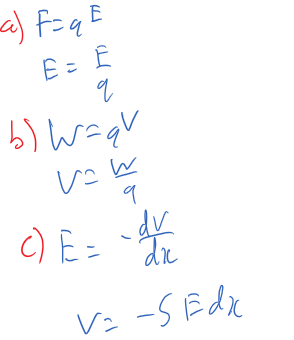 a) F=qE
E = E/q
b) W=qV
V= W/q
c) E = -dV/dx
V= -∫ E dx